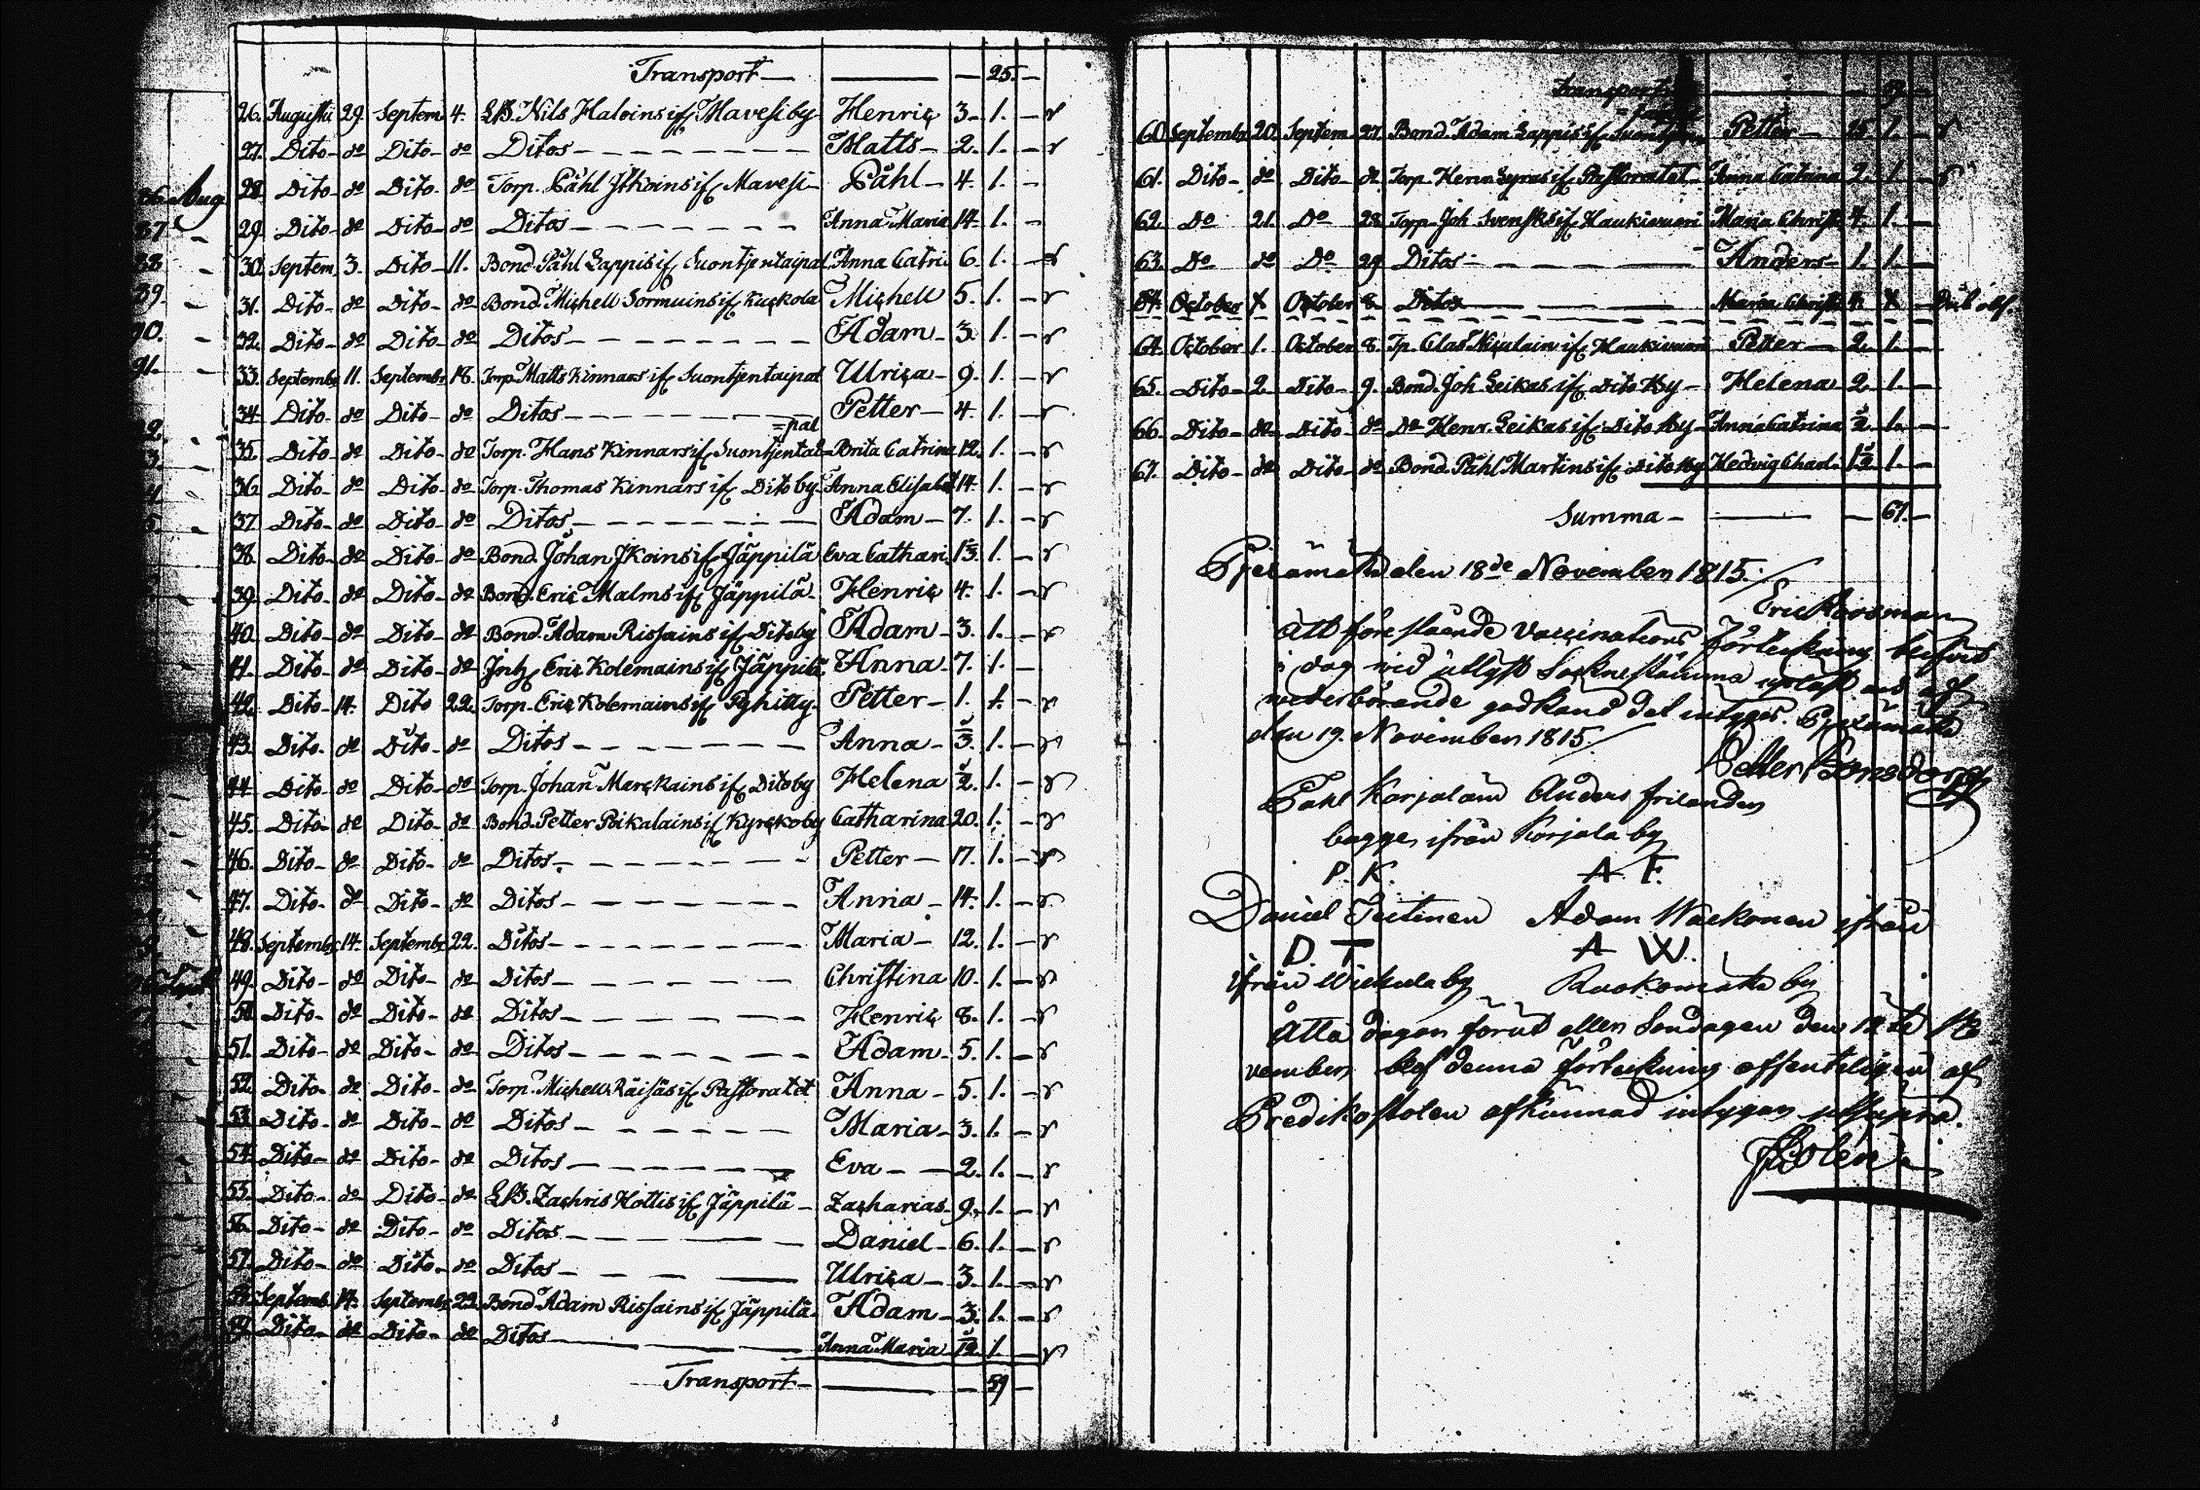 Transport — — — 25. —
26. Augusti 29. Septem. 4. LB. Nils Haloins if. Mavesi by Henric 3. 1. —
27. Dito do Dito do Ditos Matts 2. 1. —
28. Dito do Dito do Torp. Påhl Ikoins if. Mavesi Påhl 4. 1. —
29. Dito do Dito do Ditos Anna Maria 14. 1. —
30. Septem. 3. Dito 11. Bond. Påhl Lappis if. Suontjentaipal Anna Catri. 6. 1. —
31. Dito do Dito do Bond. Michell Sormuins if. Kuckola Michell 5. 1. —
32. Dito do Dito do Ditos Adam 3. 1. —
33. Septembr. 11. Septembr. 18. Torp. Matts Kinnars if. Suontjentaipal Ulrica 9. 1. —
34. Dito do Dito do Ditos Petter 4. 1. —
=pal
35. Dito do Dito do Torp. Hans Kinnars if. Suontjentai= Brita Catrin. 12. 1. —
36. Dito do Dito do Torp. Thomas Kinnars if. Dito by Anna Elisabet 14. 1. —
37. Dito do Dito do Ditos Adam 7. 1. —
38. Dito do Dito do Bond. Johan Ikoins if. Jäppilä Eva Cathari. 1. —
39. Dito do Dito do Bond. Eric Malms if. Jäppilä Henric 4. 1. —
40. Dito do Dito do Bond. Adam Rissains if. Dito by Adam 3. 1. —
41. Dito do Dito do Inh. Eric Kolemains if. Jäppilä Anna 7. 1. —
42. Dito 14. Dito 22. Torp. Eric Kolemains if. Pyhitty Petter 1. 1. —
43. Dito do Dito do Ditos Anna 3. 1. —
44. Dito do Dito do Torp. Johan Marckains if. Dito by Helena 2. 1. —
45. Dito do Dito do Bond. Petter Poikalains if. Kyrckoby Catharina 20. 1. —
46. Dito do Dito do Ditos Petter 17. 1. —
47. Dito do Dito do Ditos Anna 14. 1. —
48. Septembr. 14. Septembr. 22. Ditos Maria 12. 1. —
49. Dito do Dito do Ditos Christina 10. 1. —
50. Dito do Dito do Ditos Henric 8. 1. —
51. Dito do Dito do Ditos Adam 5. 1. —
52. Dito do Dito do Torp. Michell Räisäs if. Pastoratet Anna 5. 1. —
53. Dito do Dito do Ditos Maria 3. 1. —
54. Dito do Dito do Ditos Eva 2. 1. —
55. Dito do Dito do LB. Zachris Hottis if. Jäppilä Zacharias 9. 1. —
56. Dito do Dito do Ditos Daniel 6. 1. —
57. Dito do Dito do Ditos Ulrica 3. 1. —
58. Septemb. 14. Septembr. 22. Bond. Adam Rissains if. Jäppilä Adam 3. 1. —
59. Dito do Dito do Ditos Anna Maria 1. —
Transport — — — 59 —
Transport — — — 59. —
60. Septembr. 20. Septem. 27. Bond. Adam Lappis if. Petter 1. —
61. Dito do Dito do Torp. Henr. Lyras if. Pastoratet Anna Catrina 2. 1. —
62. Do 21. Do 28. Torp. Joh. Svensks if. Haukivuori Maria Christ. 4. 1. —
63. Do do Do 29. Ditos Anders 1. 1. —
64. October 1. October 8. Ditos Maria Christ. 4. 1. —
64. October 1. October 8. Tp. Clas Niculain if. Haukivuori Petter 2. 1. —
65. Dito 2. Dito 9. Bond. Joh. Leikas if. Dito by Helena 2. 1. —
66. Dito do Dito do Do Henr. Leikas if. Dito by Anna Catrina 2. 1. —
67. Dito do Dito do Bond. Påhl Martins if. Dito by Hedvig Charl. 1. —
Summa — — — 67. —
Pjexämäki den 18de November 1815.
Eric Roosman
Att förestående Vaccinations Förteckning blifvit
i dag vid utlyst Socknestämma upläst och af
vederbörande godkänd det intygas. Pjexämäki
den 19. November 1815.
Petter Bonsdorff
Påhl Karjalain Anders Frilander
bägge ifrån Korjala by
P. K. A. F.
Daniel Teitinen Adam Wäckonen ifrån
D. T. A W.
ifrån by Ruokomäki by
Åtta dagar förut eller Söndagen den 12te No
vember blef denna förteckning offenteligen af
Predikostolen afkunnad intygar utsupra.